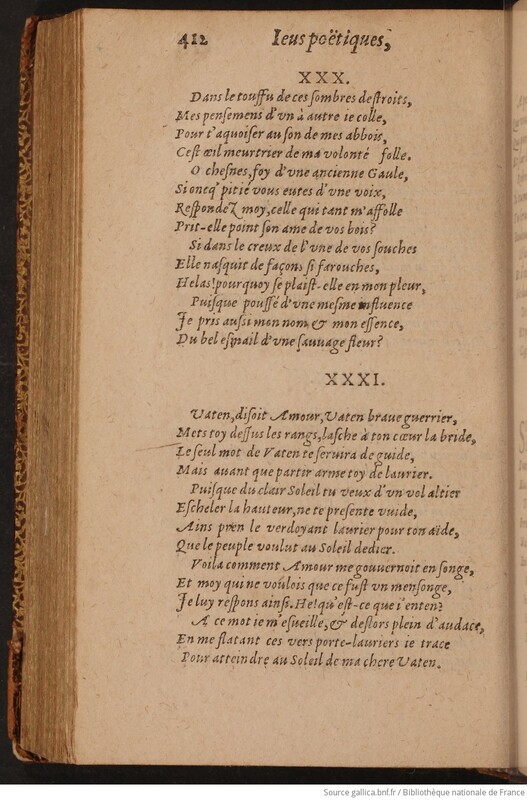 412 Ieus poëtiques,
XXX.
Dans le touffu de ces sombres destroits,
Mes pensemens d'vn à autre ie colle,
Pour t'aquoiser au son de mes abbois,
Cest œil meurtrier de ma volonté folle.
O chesnes, foy d'vne ancienne Gaule,
Si oncq' pitié vous eutes d'vne voix,
Respondez moy, celle qui tant m'affolle
Prit-elle point son ame de vos bois?
Si dans le creux de l'vne de vos souches
Elle nasquit de façons si farouches,
Helas! pourquoy se plaist-elle en mon pleur,
Puisque poussé d'vne mesme influence
Je pris aussi mon nom, & mon essence,
Du bel esmail d'vne sauuage fleur?
XXXI.
Vaten, disoit Amour, Vaten braue guerrier,
Mets toy dessus les rangs, lasche à ton cœur la bride,
Le seul mot de Vaten te seruira de guide,
Mais auant que partir arme toy de laurier.
Puisque du clair Soleil tu veux d'vn vol altier
Escheler la hauteur, ne te presente vuide,
Ains pren le verdoyant laurier pour ton aide,
Que le peuple voulut au Soleil dedier.
Voila comment Amour me gouuernoit en songe,
Et moy qui ne voulois que ce fust vn mensonge,
Je luy respons ainsi. He! qu'est-ce que i'enten?
A ce mot ie m'esueille, & deslors plein d'audace,
En me flatant ces vers porte-lauriers ie trace
Pour atteindre au Soleil de ma chere Vaten.
Source gallica.bnf.fr / Bibliothèque nationale de France